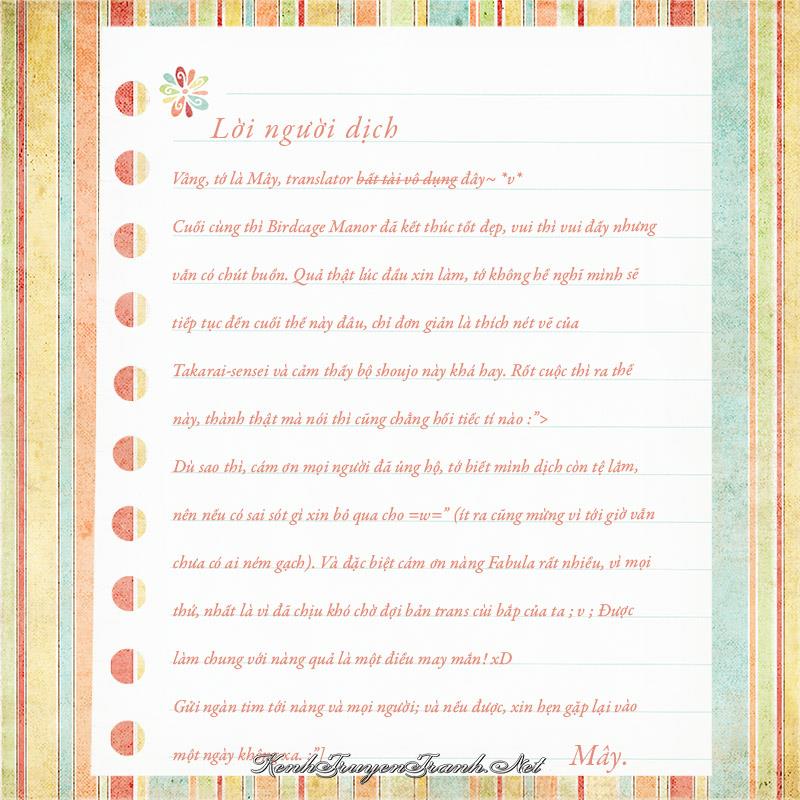 Lời người dịch
Vâng, tớ là Mây, translator bất tài vô dụng đây~ *v*
Cuối cùng thì Birdcage Manor đã kết thúc tốt đẹp, vui thì vui đấy nhưng
vẫn có chút buồn. Quả thật lúc đầu xin làm, tớ không hề nghĩ mình sẽ
tiếp tục đến cuối thế này đâu, chỉ đơn giản là thích nét vẽ của
Takarai-sensei và cảm thấy bộ shoujo này khá hay. Rốt cuộc thì ra thế
này, thành thật mà nói thì cũng chẳng hối tiếc tí nào :">
Dù sao thì, cám ơn mọi người đã ủng hộ, tớ biết mình dịch còn tệ lắm,
nên nếu có sai sót gì xin bỏ qua cho =w=" (ít ra cũng mừng vì tới giờ vẫn
chưa có ai ném gạch). Và đặc biệt cám ơn nàng Fabula rất nhiều, vì mọi
thứ, nhất là vì đã chịu khó chờ đợi bản trans cùi bắp của ta ; v ; Được
làm chung với nàng quả là một điều may mắn! xD
Gửi ngàn tim tới nàng và mọi người; và nếu được, xin hẹn gặp lại vào
một ngày không xa. :"]
Mây.
KenhTruyenTranh.Net